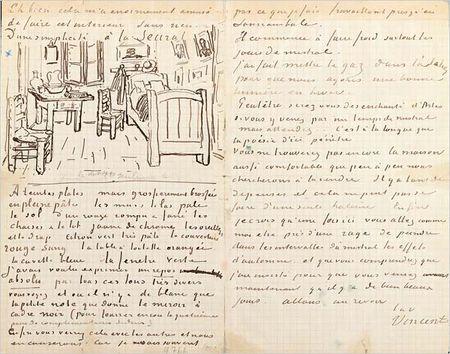 Eh bien cela m'a enormement amusé
de faire cet interieur sans rien
D'une simplicité à la Seurat
A teintes plates mais grossierement brossées
en pleine pâte les murs lilas pale
le sol d'un rouge rompu & fané les
chaises & le lit jaune de chrome les oreillers
et le drap citron vert très pale la couverture
rouge sang la table à toilette orangée
la cuvette bleue la fenetre verte
J'avais voulu exprimer un repos
absolu par tous ces tons très divers
vous voyez et où il n'y a de blanc que
la petite note que donne le miroir à
cadre noir (pour fourrer encore la quatrième
paire de complementaires dedans)
Enfin vous verrez cela avec les autres et nous
en causerons. Car je ne sais souvent
pas ce que je fais travaillant presqu'en
somnambule.
Il commence à faire froid surtout les
jours de mistral.
J'ai fait mettre le gaz dans l'atelier
pour que nous ayons une bonne
lumiere en hiver.
Peutêtre serez vous desenchanté d'Arles
si vous y venez par un temps de mistral
mais attendez... C'est à la longue que
la poésie d'ici pénètre
Vous ne trouverez pas encore la maison
aussi confortable que peu à peu nous
chercherons à la rendre. Il y a tant de
depenses et cela ne peut pas se
faire d'une seule haleine. Enfin
je crois qu'une fois ici vous allez comme
moi etre pris d'une rage de peindre
dans les intervalles du mistral les effets
d'automne et que vous comprendrez que
j'aie insisté pour que vous veniez
maintenant qu'il y a de bien beaux
jours allons au revoir
t à v
Vincent